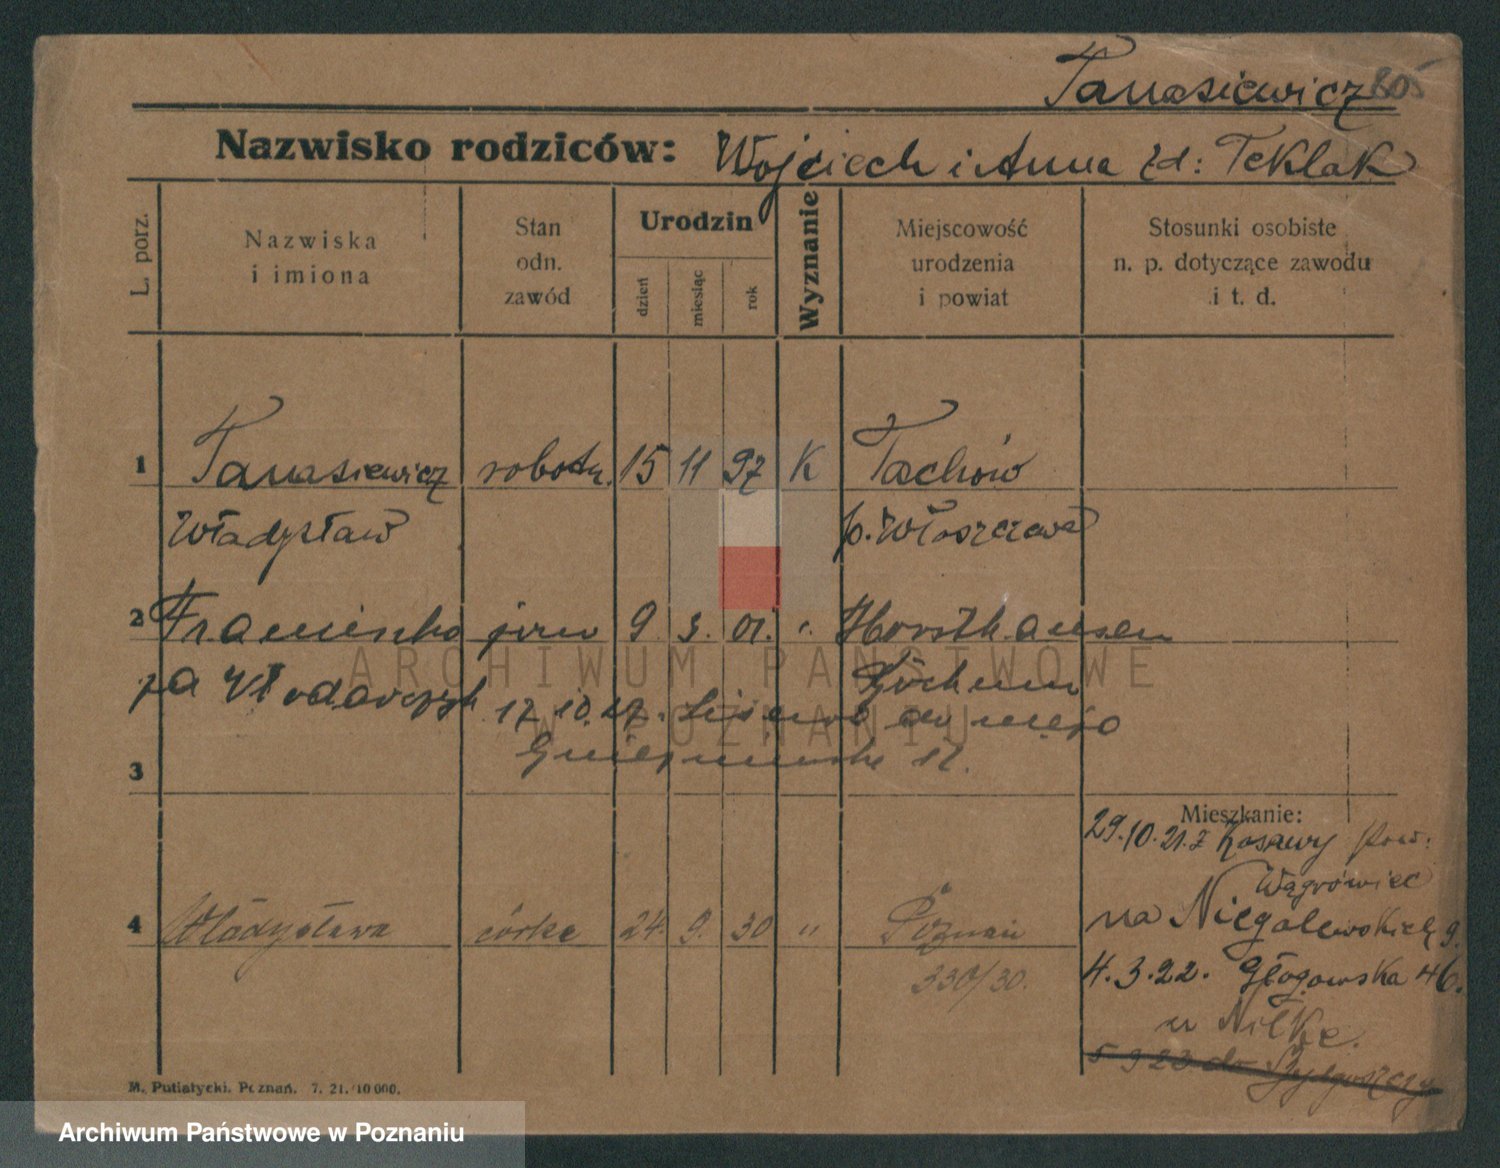 Tanasiewicz 805
Nazwisko rodziców: Wojciech i Anna zd: Teklak
L. porz.
Nazwiska
i imiona
Stan
odn.
zawód
Urodzin
dzień
miesiąc
rok
Wyznanie
Miejscowość
urodzenia
i powiat
Stosunki osobiste
n. p. dotyczące zawodu
i t. d.
1 Tanasiewicz robotn. 15 11 97 K Tachów
Władysław p. Włoszczowa
2 Franciszka 9 3. 01. ". Horsthausen
za Włodarczyk
17.10.27. do męża
3 17.
Mieszkanie:
29.10.21. z Pow:
Wągrówiec
na Niegolewskich 9.
4 Władysława córka 24. 9. 30 " Poznań
4.3.22. Głogowska 46.
330/30.
u Nilke.
5 9 23 do Bydgoszczy
M. Putiatycki. Poznań. 7. 21. 10 000.
ARCHIWUM PAŃSTWOWE
W POZNANIU
Archiwum Państwowe w Poznaniu